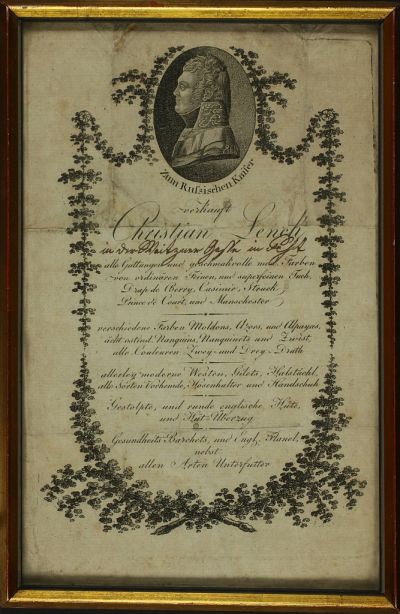 Zum Russischen Kaiser
verkauft
Christian Lensch
in der in
alle Gattungen und geschmakvolle mod. Farben
von ordinären Feinen, und superfeinen Tuch,
Drap de Berry, Casimir, Struck
Prince de Court, und Manschester
verschiedene Farben Moldons, Azors, und Alpagas,
ächt ostind. Nanquins, Nanquinets und Zwist,
alle Couleuren Zwey- und Drey-Drath
allerley moderne Westen, Gilets, Halstüchl,
alle Sorten Vorhemde, Hosenhalter und Handschuh
Gestolpte, und runde englische Hüte,
und Hut-Uberzug
Gesundheits Barchets, und Engl. Flanel,
nebst
allen Arten Unterfutter